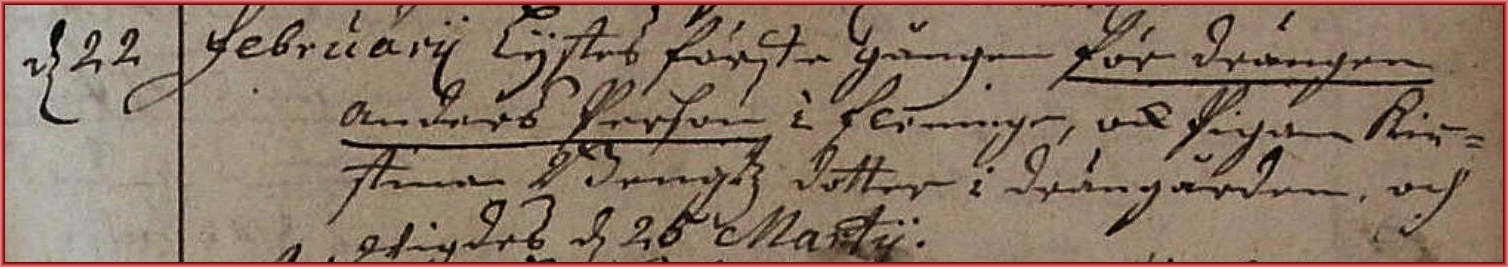 d 22 februarij Lystes första gången för drängen
Anders Person i fleninge, och Pigan Kir=
stina Bengtz dotter i drängården, och
wigdes d 26 Martij.